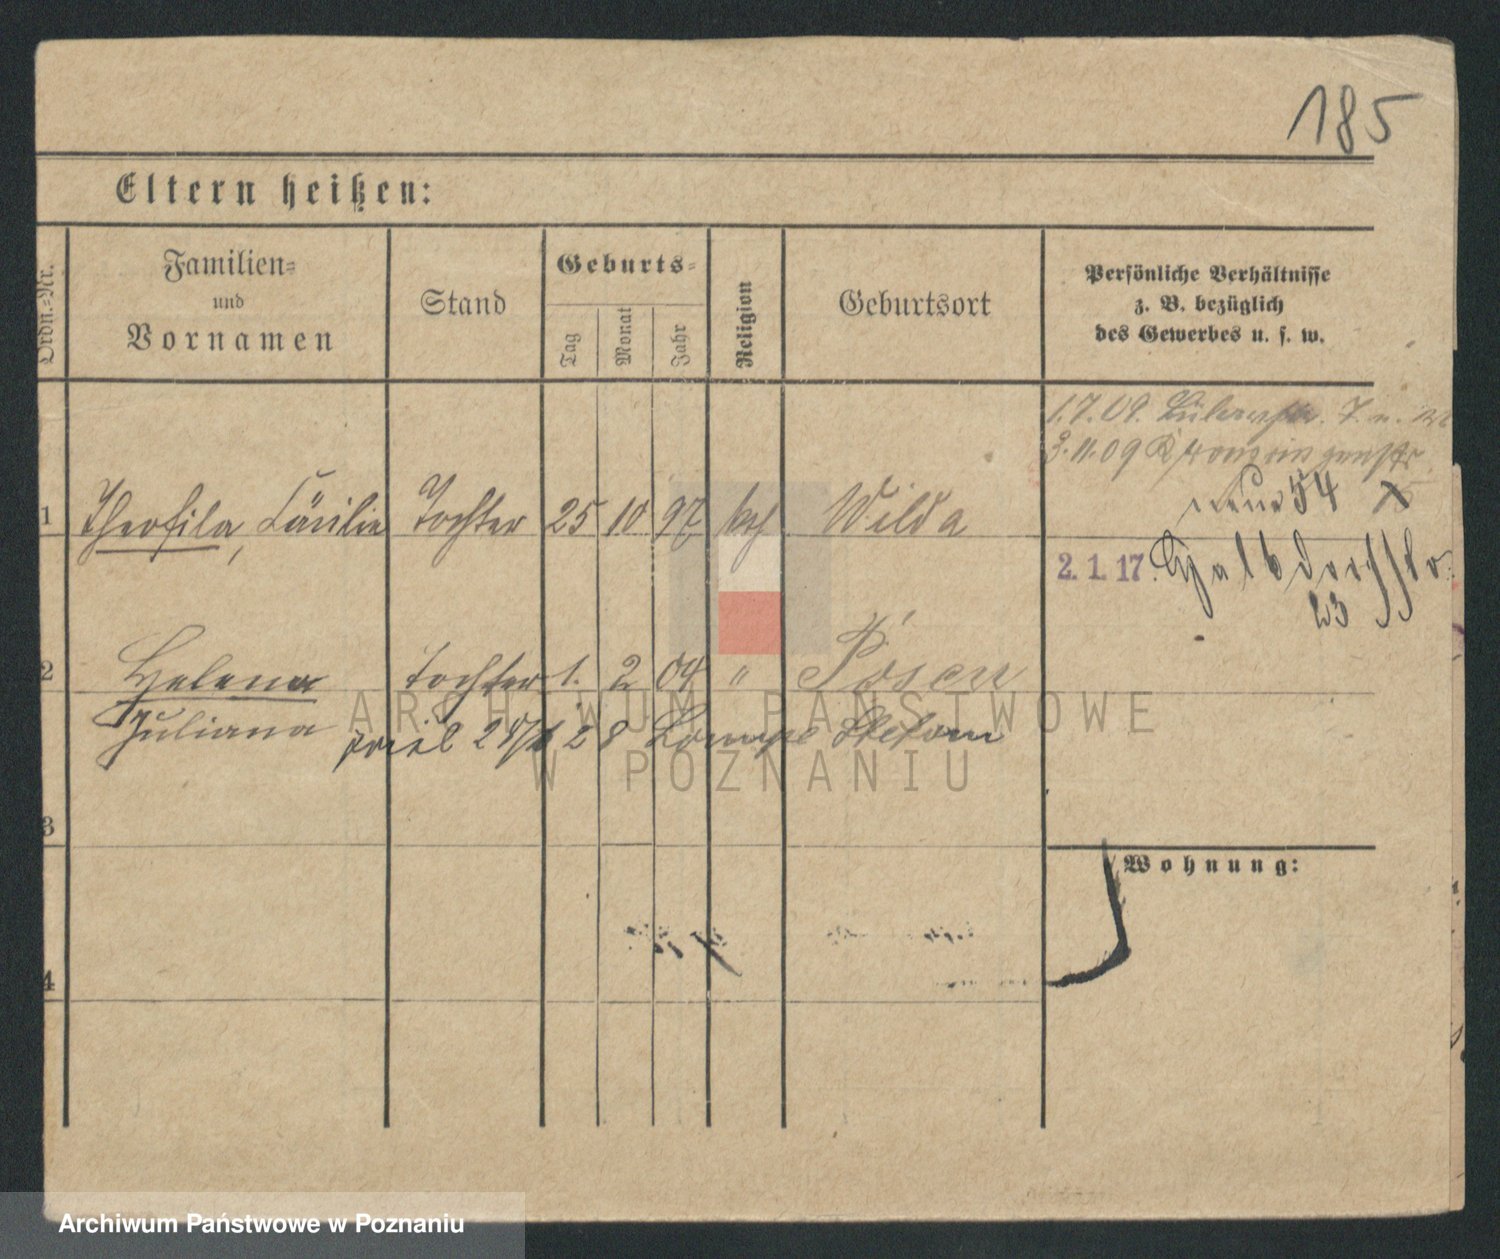 185
Eltern heißen:
Ordn.-Nr.
Familien-
und
Vornamen
Stand
Geburts-
Tag
Monat
Jahr
Religion
Geburtsort
Persönliche Verhältnisse
z. B. bezüglich
des Gewerbes u. s. w.
1.7.09.
3.11.09 Kronprinzenstr
54
1 Theofila, Cäcilie Tochter 25 10 97 kath Wilda
2.1.17. Halbdorfstr.
23
2 Helena Tochter 1. 2 04 " Posen
Juliana
28 Stefan
3
Wohnung:
4
ARCHIWUM PAŃSTWOWE
W POZNANIU
Archiwum Państwowe w Poznaniu